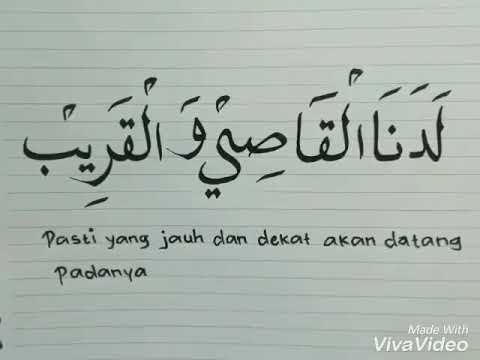 لَدَنَا الْقَاصِيْ وَ الْقَرِيْبْ
Pasti yang jauh dan dekat akan datang
padanya
Made With
VivaVideo